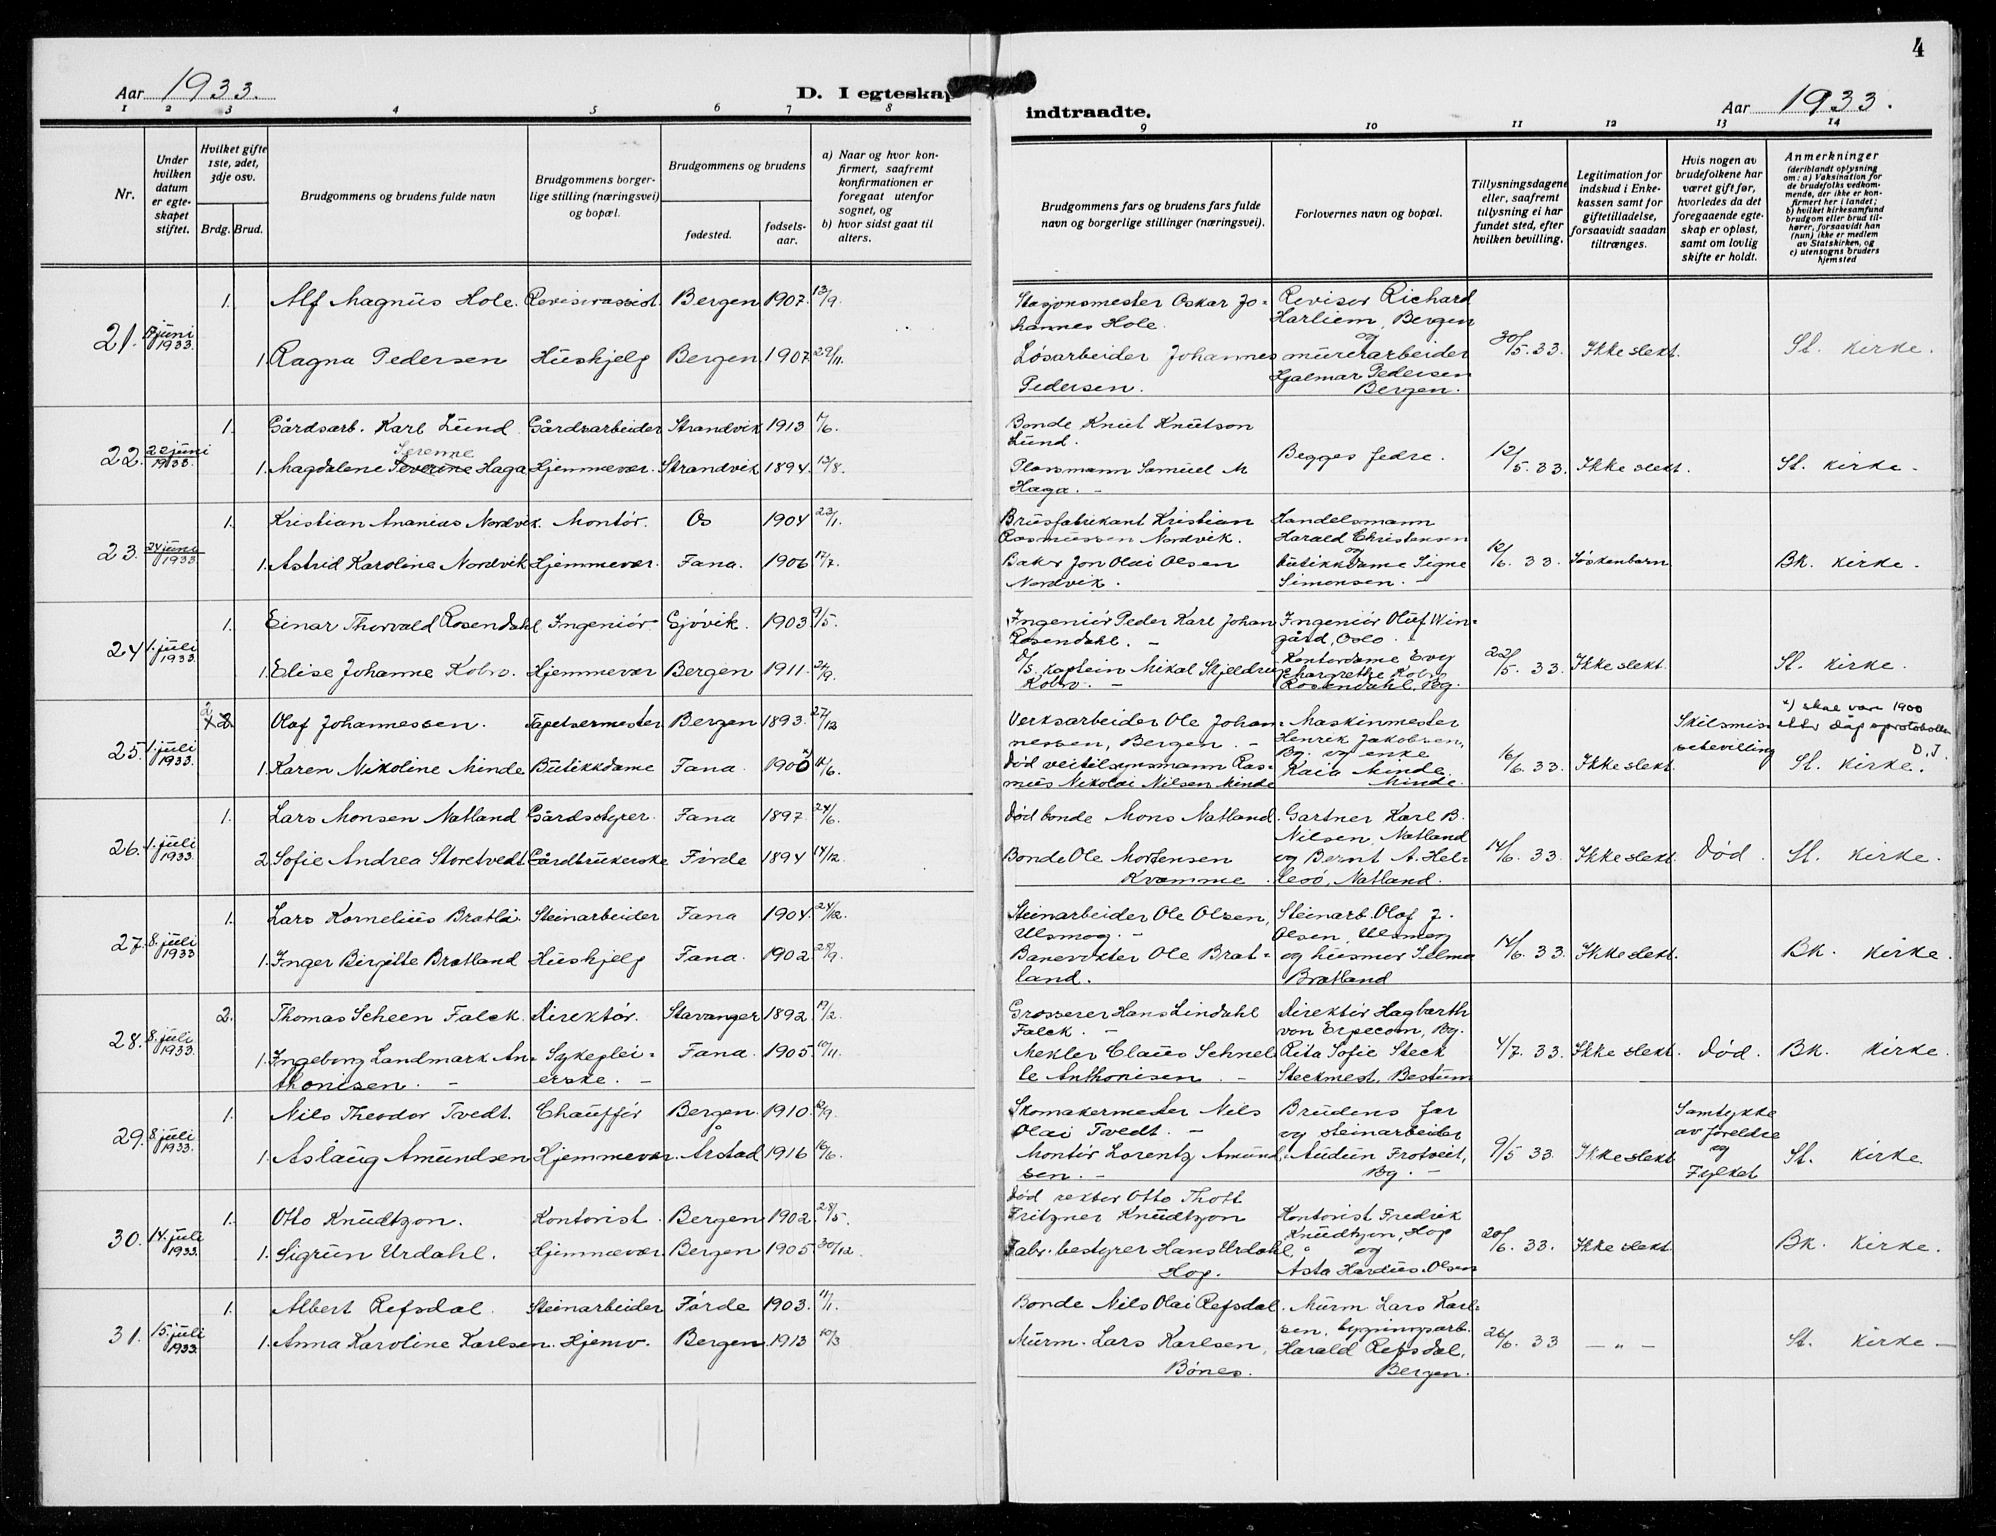 4
Aar 1933.
D. I egteskap
indtraadte.
Aar 1933.
1 2 3 4 5 6 7 8
9 10 11 12 13 14
Nr.
Under hvilken datum er egteskapet stiftet.
Hvilket gifte 1ste, 2det, 3dje osv.
Brdg. Brud.
Brudgommens og brudens fulde navn
Brudgommens borgerlige stilling (næringsvei) og bopæl.
Brudgommens og brudens
fødested.
fødselsaar.
a) Naar og hvor konfirmert, saafremt konfirmationen er foregaat utenfor sognet, og
b) hvor sidst gaat til alters.
Brudgommens fars og brudens fars fulde navn og borgerlige stillinger (næringsvei).
Forlovernes navn og bopæl.
Tillysningsdagene eller, saafremt tillysning ei har fundet sted, efter hvilken bevilling.
Legitimation for indskud i Enkekassen samt for giftetilladelse, forsaavidt saadan tiltrænges.
Hvis nogen av brudefolkene har været gift før, hvorledes da det foregaaende egteskap er opløst, samt om lovlig skifte er holdt.
Anmerkninger
(deriblandt oplysning om: a) Vaksination for de brudefolks vedkommende, der ikke er konfirmert her i landet; b) hvilket kirkesamfund brudgom eller brud tilhører, forsaavidt han (hun) ikke er medlem av Statskirken, og c) utensogns bruders hjemsted
21. juni 1933. 1. Alf Magnus Hole. Revisorassist. Bergen 1907. 13/9.
1. Ragna Pedersen Hushjelp Bergen 1907 29/11.
Stasjonsmester Oskar Johannes Hole.
Løsarbeider Johannes Pedersen.
Revisor Richard Harliem, Bergen og murerarbeider Hjalmar Pedersen Bergen.
30/5. 33. Ikke slekt. St. kirke.
22. 22 juni 1933. 1. Gårdsarb. Karl Lund Gårdsarbeider Strandvik 1913 /6.
1. Magdalene Severine Haga Hjemmevær. Strandvik 1894. 12/8.
Serenne
Bonde Knut Knutson Lund.
Plassmann Samuel M Haga. -
Begges fedre.
12/5. 33. Ikke slekt. St. kirke.
23. 24 juni 1933 1. Kristian Ananias Nordvik. Montør. Os 1904 23/1.
1. Astrid Karoline Nordvik Hjemmevær. Fana. 1906 17/7.
Brusfabrikant Kristian Rasmussen Nordvik.
Baker Jon Olai Olsen Nordvik.
Handelsmann Harald Christensen og butikkdame Signe Simonsen.
12/6. 33. Søskenbarn Bk. kirke.
24 1. juli 1933. 1. Einar Thorvald Rosendahl Ingeniør Gjøvik. 1903. 9/5.
1. Elise Johanne Kobro. Hjemmevær Bergen 1911. 24/9.
Ingeniør Peder Karl Johan Rosendahl. -
D/S. kaptein Mikal Skjeldrup Kobro. -
Ingeniør Oluf Wingård, Oslo.
Kontordame Evy Margrethe Kobro Rosendahl, Bg.
22/5. 33. Ikke slekt. St. kirke.
25 1. juli 1933. 2 Olaf Johannessen. Tapetsermester Bergen 1893. 27/12
1. Karen Nikoline Minde Butikkdame Fana. 1900 x) 11/6.
Verksarbeider Ole Johannessen, Bergen. -
Død veitilsynsmann Rasmus Nikolai Nilsen Minde
Maskinmester Henrik Jakobsen, Bg. og enke Kaia Minde, Minde.
16/6. 33. Ikke slekt. Skilsmissebevilling
x) skal være 1900 etter dåpsprotokollen D. J
St. kirke.
26. 1. juli 1933. 1. Lars Monsen Natland Gårdsstyrer. Fana 1897. 24/6.
2. Sofie Andrea Storetvedt. Gårdbrukerske Førde 1894 14/12.
Død bonde Mons Natland.
Bonde Ole Mortensen Kvamme.
Gartner Karl B. Nilsen, Natland og Bernt A. Hellesø, Natland.
14/6. 33. Ikke slekt. Død. St. kirke.
27. 8. juli 1933 1. Lars Kornelius Bratli. Steinarbeider Fana 1904. 24/12.
1. Inger Birgitte Bratland Hushjelp Fana. 1902. 28/9.
Steinarbeider Ole Olsen, Ulsmog. -
Banevokter Ole Bratland.
Steinarb. Olaf J. Olsen, Ulsmog og husmor Selma Bratland
14/6. 33. Ikke slekt. Bk. kirke.
28. 8. juli 1933. 2. Thomas Scheen Falck. Direktør. Stavanger 1892. 17/2.
1. Ingeborg Landmark Anthonisen. - Sykepleierske. - Fana. 1905. 10/11.
Grosserer Hans Lindahl Falck. -
Mekler Claus Schnelle Anthonisen. -
Direktør Hagbarth von Erpecom, Bg.
Rita Sofie Steck Steckmest, Bestum
4/7. 33. Ikke slekt. Død. Bk. kirke.
29. 8. juli 1933. 1. Nils Theodor Tvedt. Chauffør Bergen. 1910. 12/9.
1. Aslaug Amundsen Hjemmevær. Årstad 1916 16/6.
Skomakermester Nils Olai Tvedt. -
Montør Lorentz Amundsen. -
Brudens far og steinarbeider Audun Frotveit, Bg. -
9/5 33. Ikke slekt Samtykke av foreldre og Fylket St. kirke.
30. 14. juli 1933. 1. Otto Knudtzon. Kontorist. Bergen 1902. 28/5.
1. Sigrun Urdahl. Hjemmevær. Bergen 1905. 30/12.
Død rektor Otto Thott Fritzner Knudtzon
Fabr. bestyrer Hans Urdahl, Hop.
Kontorist Fredrik Knudtzon, Hop og Asta Hardus-Olsen
20/6. 33. Ikke slekt. Bk. kirke.
31. 15. juli 1933. 1. Albert Refsdal. Steinarbeider Førde 1903. 11/1.
1. Anna Karoline Karlsen. Hjemv. Bergen. 1913 10/3
Bonde Nils Olai Refsdal.
Murm. Lars Karlsen, Bønes.
Murm. Lars Karlsen, bygningsarb. Harald Refsdal, Bergen.
26/6. 33 - " - St. kirke -